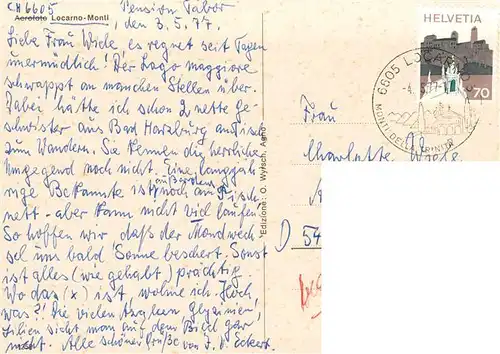 CH 6605
Aerofoto Locarno-Monti
Pension Tabor
, den 3.5.77.
Liebe Frau Wiele, es regnet seit Tagen
unermüdlich! Der Lago maggiore
schwappt an manchen Stellen über.
Dabei hätte ich schon 2 nette Ge-
schwister aus Bad Harzburg am Tisch
zum Wandern. Sie kennen die herrliche
Umgegend noch nicht. Eine langjäh-
rige Bekannte ist noch am Tisch
außerdem
nett - aber kann nicht viel laufen!
So hoffen wir daß der Mondwech-
sel uns bald Sonne beschert. Sonst
ist alles (wie gehabt) prächtig.
Wo das (x) ist, wohne ich. Hoch,
was?! Die vielen Glyzinien,
Lilien sieht man auf dem Bild gar
nicht. Alle schönen von I. Eckert.
Edizione: O. Wyrsch, Agno
HELVETIA
70
6605 LOCARNO
MONTI DELLA TRINITÀ
Frau
Charlotte Wiele
D 54